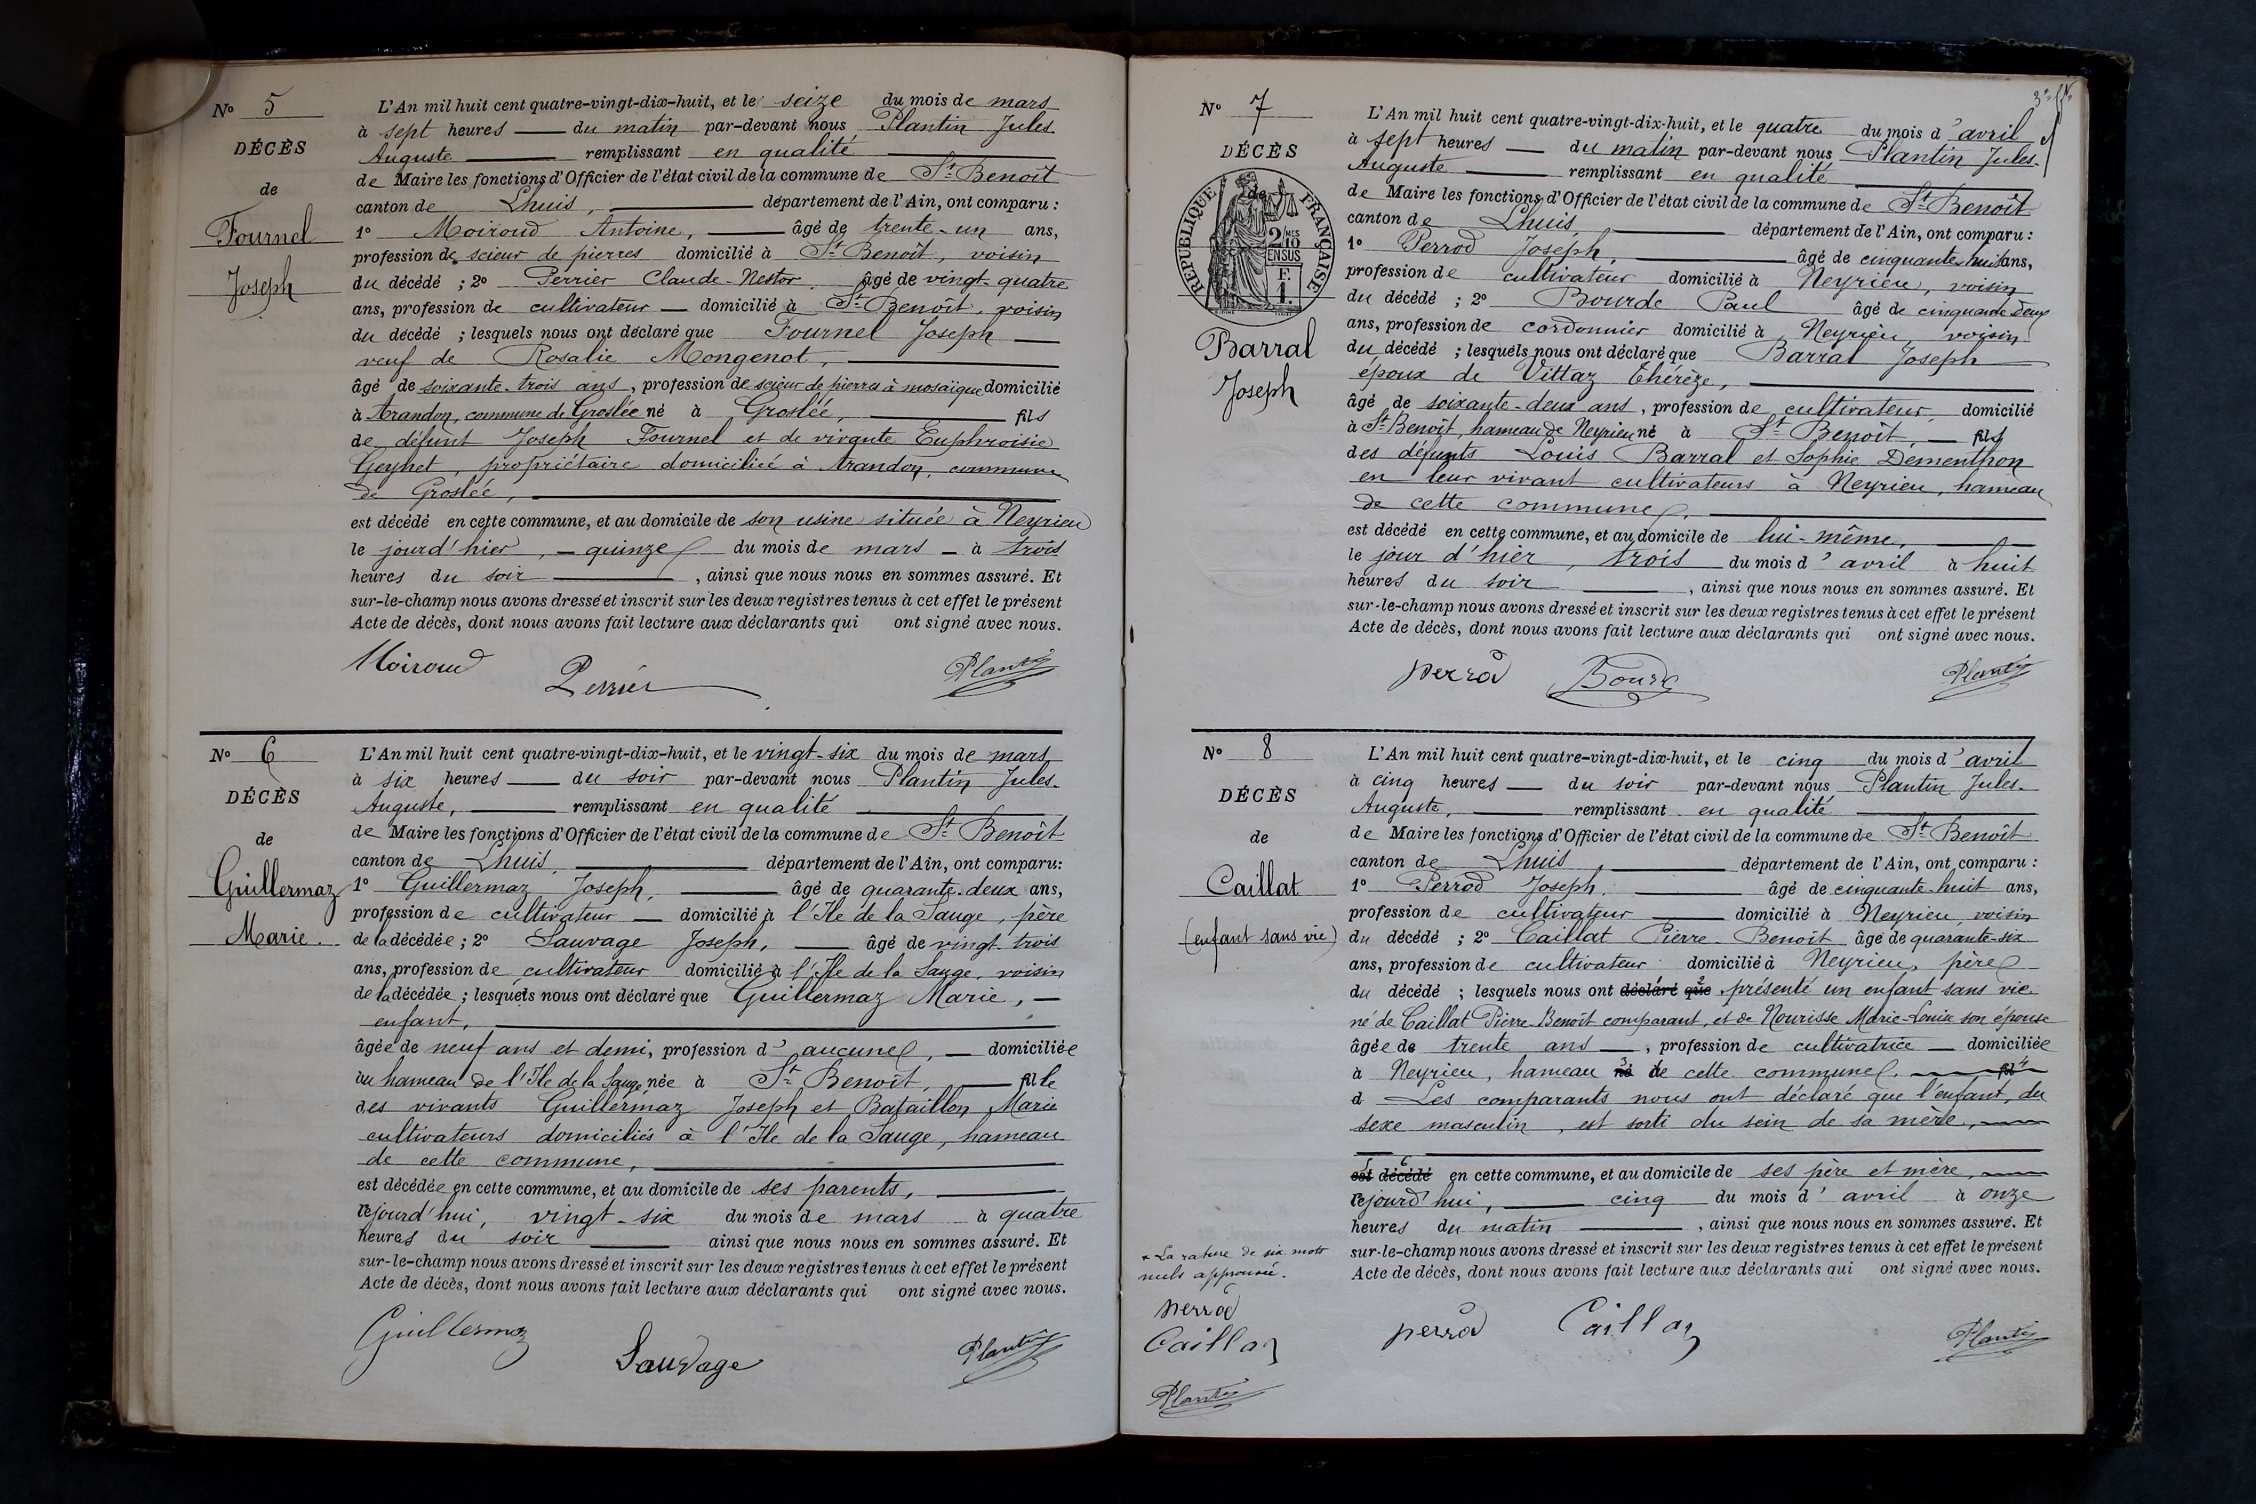 N° 5
DÉCÈS
de
Fournel
Joseph
L'An mil huit cent quatre-vingt-dix-huit, et le seize du mois de mars
à sept heures du matin par-devant nous Plantin Jules
Auguste remplissant en qualité
de Maire les fonctions d'Officier de l'état civil de la commune de St Benoît
canton de Lhuis, département de l'Ain, ont comparu :
1° Moiroud Antoine, âgé de trente-un ans,
profession de scieur de pierres domicilié à St Benoît, voisin
du décédé ; 2° Perrier Claude-Nestor âgé de vingt-quatre
ans, profession de cultivateur domicilié à St Benoît, voisin
du décédé ; lesquels nous ont déclaré que Fournel Joseph
veuf de Rosalie Mongenot,
âgé de soixante-trois ans, profession de scieur de pierres à mosaïque domicilié
à Arandon, commune de Groslée né à Groslée, fils
de défunt Joseph Fournel et de vivante Euphroisie
Geynet, propriétaire domiciliée à Arandon, commune
de Groslée,
est décédé en cette commune, et au domicile de son usine située à Neyrieu
le jourd'hier, quinze du mois de mars à trois
heures du soir, ainsi que nous nous en sommes assuré. Et
sur-le-champ nous avons dressé et inscrit sur les deux registres tenus à cet effet le présent
Acte de décès, dont nous avons fait lecture aux déclarants qui ont signé avec nous.
Moiroud Perrier Plantin
N° 6
DÉCÈS
de
Guillermaz
Marie.
L'An mil huit cent quatre-vingt-dix-huit, et le vingt-six du mois de mars
à six heures du soir par-devant nous Plantin Jules-
Auguste, remplissant en qualité
de Maire les fonctions d'Officier de l'état civil de la commune de St Benoît
canton de Lhuis, département de l'Ain, ont comparu :
1° Guillermaz Joseph, âgé de quarante-deux ans,
profession de cultivateur domicilié à l'Ile de la Sauge, père
de la décédée ; 2° Sauvage Joseph, âgé de vingt-trois
ans, profession de cultivateur domicilié à l'Ile de la Sauge, voisin
de la décédée ; lesquels nous ont déclaré que Guillermaz Marie,
enfant,
âgée de neuf ans et demi, profession d'aucune, domiciliée
au hameau de l'Ile de la Sauge née à St Benoît, fille
des vivants Guillermaz Joseph et Bataillon Marie
cultivateurs domiciliés à l'Ile de la Sauge, hameau
de cette commune,
est décédée en cette commune, et au domicile de ses parents,
cejourd'hui, vingt-six du mois de mars à quatre
heures du soir ainsi que nous nous en sommes assuré. Et
sur-le-champ nous avons dressé et inscrit sur les deux registres tenus à cet effet le présent
Acte de décès, dont nous avons fait lecture aux déclarants qui ont signé avec nous.
Guillermaz Sauvage Plantin
N° 7
DÉCÈS
de
RÉPUBLIQUE FRANÇAISE
2/10 MES
EN SUS
F.
1.
Barral
Joseph
L'An mil huit cent quatre-vingt-dix-huit, et le quatre du mois d'avril
à sept heures du matin par-devant nous Plantin Jules-
Auguste remplissant en qualité
de Maire les fonctions d'Officier de l'état civil de la commune de St Benoît
canton de Lhuis, département de l'Ain, ont comparu :
1° Perrod Joseph, âgé de cinquante-huit ans,
profession de cultivateur domicilié à Neyrieu, voisin
du décédé ; 2° Bourde Paul âgé de cinquante deux
ans, profession de cordonnier domicilié à Neyrieu, voisin
du décédé ; lesquels nous ont déclaré que Barral Joseph
époux de Vittaz Thérèze,
âgé de soixante-deux ans, profession de cultivateur domicilié
à St Benoît, hameau de Neyrieu né à St Benoît, fils
des défunts Louis Barral et Sophie Dementhon
en leur vivant cultivateurs à Neyrieu, hameau
de cette commune.
est décédé en cette commune, et au domicile de lui-même,
le jour d'hier, trois du mois d'avril à huit
heures du soir, ainsi que nous nous en sommes assuré. Et
sur-le-champ nous avons dressé et inscrit sur les deux registres tenus à cet effet le présent
Acte de décès, dont nous avons fait lecture aux déclarants qui ont signé avec nous.
perrod Bourde Plantin
N° 8
DÉCÈS
de
Caillat
(enfant sans vie)
L'An mil huit cent quatre-vingt-dix-huit, et le cinq du mois d'avril
à cinq heures du soir par-devant nous Plantin Jules-
Auguste, remplissant en qualité
de Maire les fonctions d'Officier de l'état civil de la commune de St Benoît
canton de Lhuis département de l'Ain, ont comparu :
1° Perrod Joseph, âgé de cinquante-huit ans,
profession de cultivateur domicilié à Neyrieu voisin
du décédé ; 2° Caillat Pierre-Benoît âgé de quarante-six
ans, profession de cultivateur domicilié à Neyrieu, père
du décédé ; lesquels nous ont déclaré que présenté un enfant sans vie
né de Caillat Pierre Benoît comparant, et de Nourisse Marie-Louise son épouse
âgée de trente ans, profession de cultivatrice domiciliée
à Neyrieu, hameau né de cette commune. fil
d Les comparants nous ont déclaré que l'enfant, du
sexe masculin, est sorti du sein de sa mère,
est décédé en cette commune, et au domicile de ses père et mère,
cejourd'hui, cinq du mois d'avril à onze
heures du matin, ainsi que nous nous en sommes assuré. Et
sur-le-champ nous avons dressé et inscrit sur les deux registres tenus à cet effet le présent
Acte de décès, dont nous avons fait lecture aux déclarants qui ont signé avec nous.
La rature de six mots
nuls approuvée.
perrod
Caillat
Plantin
perrod Caillat Plantin